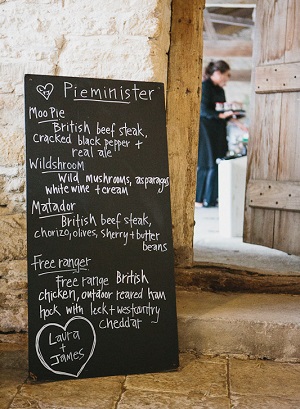 Pieminister
Moo Pie
British beef steak,
cracked black pepper +
real ale
Wildshroom
Wild mushrooms, asparagus
white wine + cream
Matador
British beef steak,
chorizo, olives, sherry + butter
beans
Free ranger
Free range British
chicken, outdoor reared ham
hock with leek + westcountry
cheddar
Laura
+
James